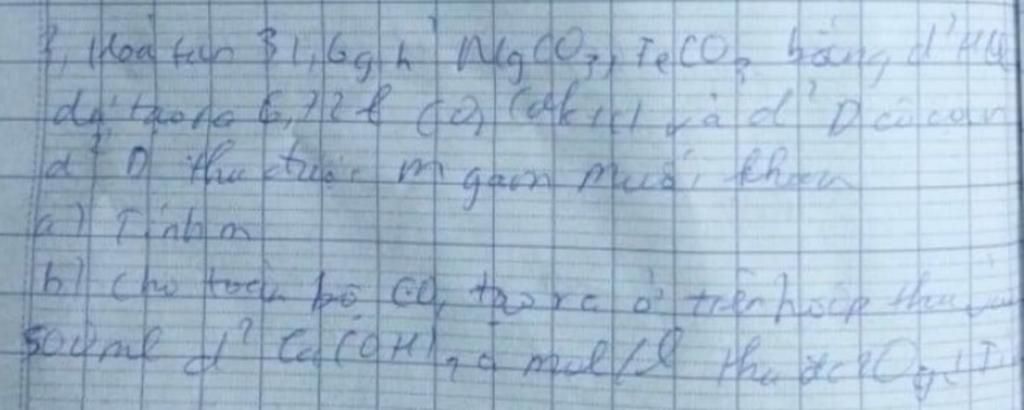 Hoà tan 31,6g h² MgCO3, FeCO3 bằng d² HCl
dư tạo ra 6,72l CO2 (đktc) và d² D cô cạn
d² D thu được m gam muối khan
a) Tính m
b) cho toàn bộ CO2 tạo ra ở trên hấp thu
500ml d² Ca(OH)2 a mol/l thu được 10g